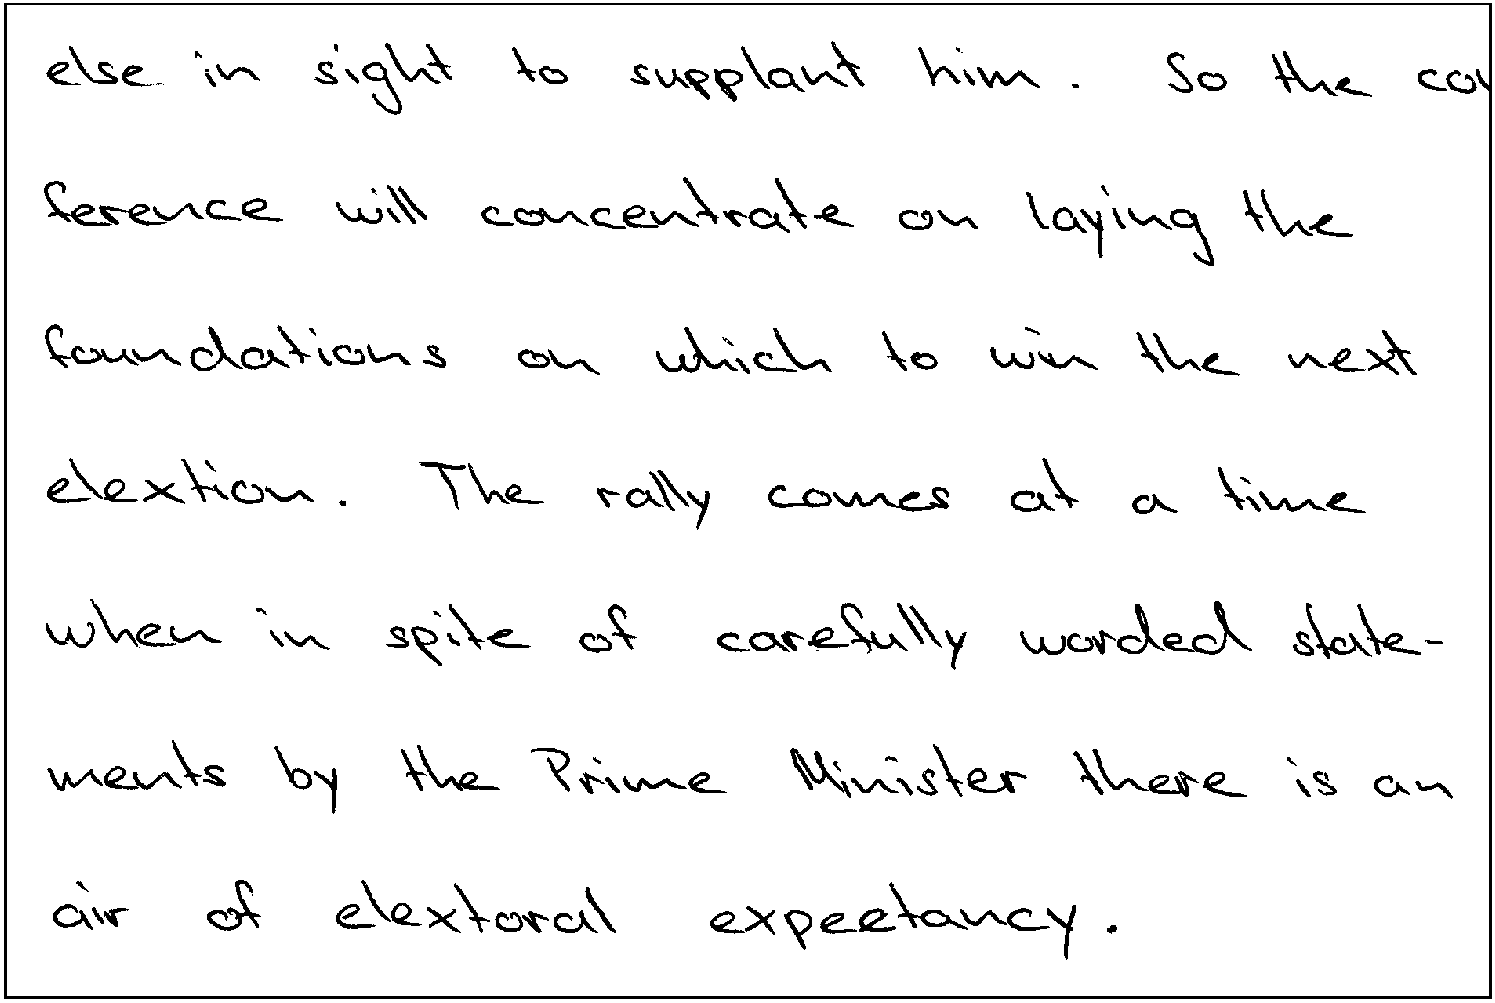 else in sight to supplant him. So the con
ference will concentrate on laying the
foundations on which to win the next
elextion. The rally comes at a time
when in spite of carefully worded state-
ments by the Prime Minister there is an
air of elextoral expeetancy.